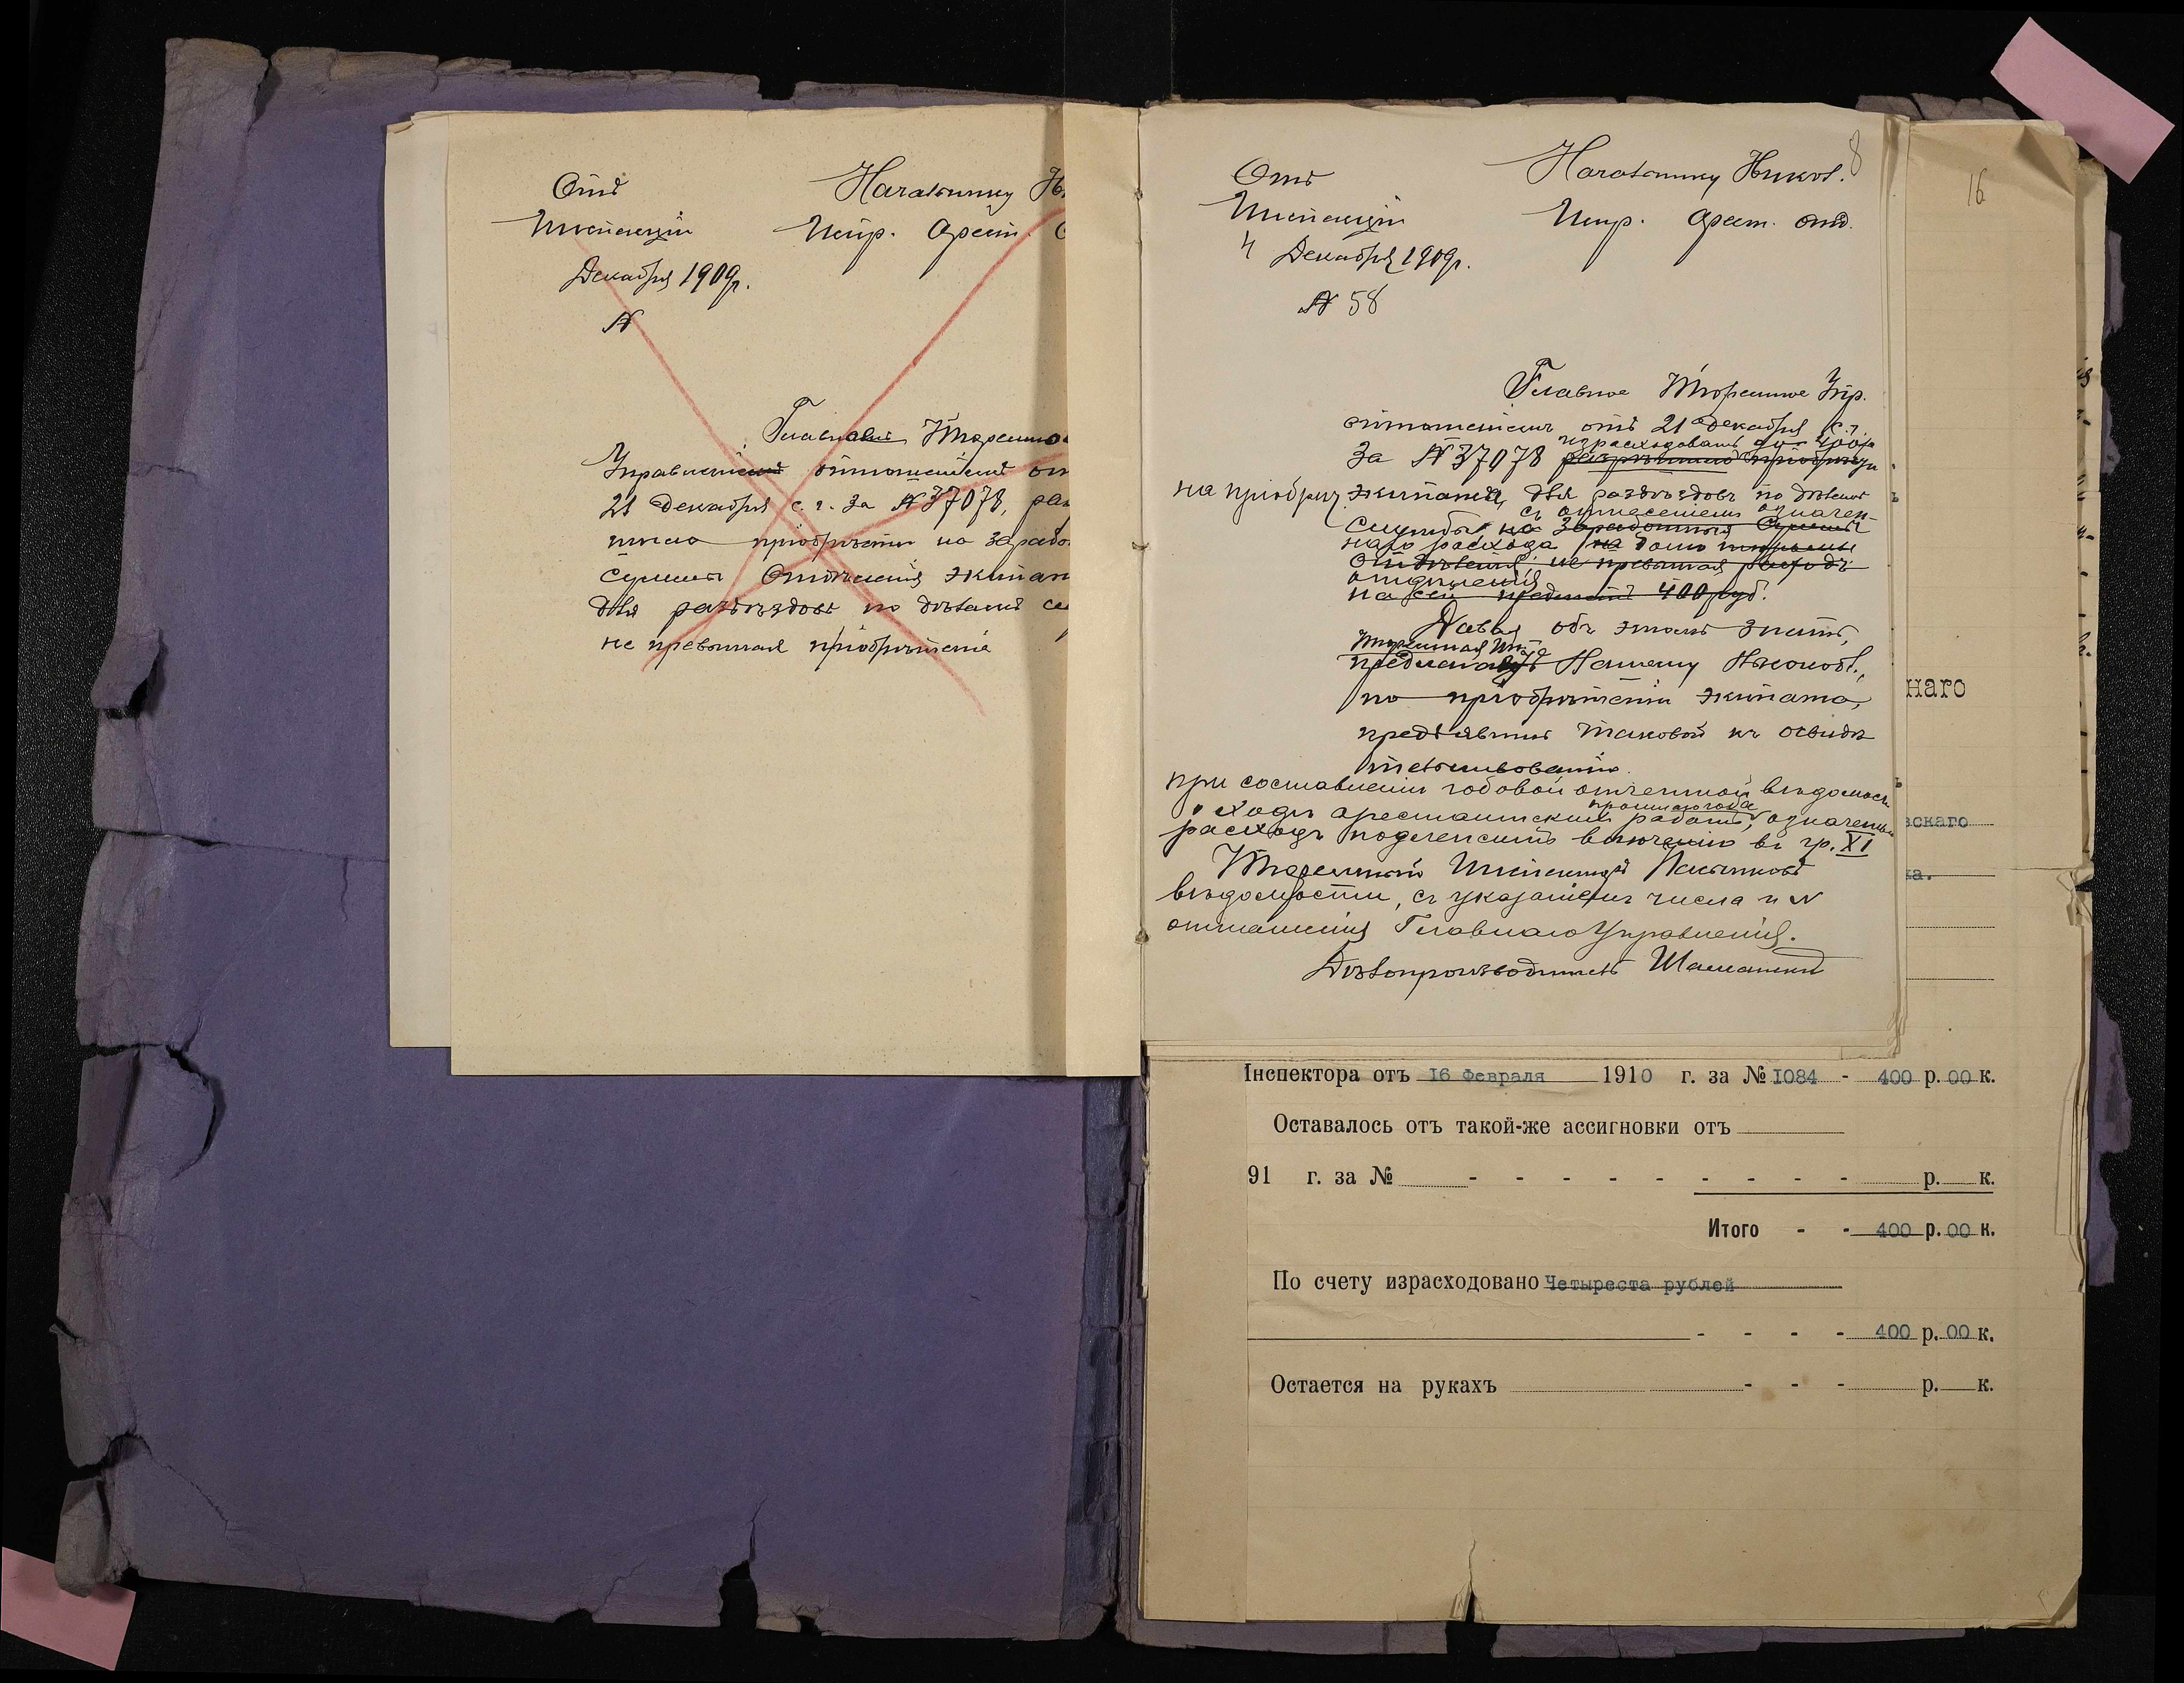 Отд
Инспекціи
Декабря 1909г.
№
Начальнику
Испр. Арест.
Главнымъ Тюремно
Управленіемъ отношеніемъ от
21 Декабря с. г. за № 37078, раз
шено пріобрѣсти на зарабо
суммы Отдѣленія экипаж
для разъѣздовъ по дѣламъ
не превышая пріобрѣтенія
8
Отд
Инспекціи
4 Декабря 1909г.
№ 58
Начальнику Никол.
Испр. Арест. отд.
Главное Тюремное Упр.
отношеніемъ отъ 21 декабря с. г.
израсходовать до 400р
за № 37078 разрѣшило
на пріобрѣт. экипажа, для разъѣздовъ по дѣламъ
съ отнесеніемъ означен-
службы на заработныя суммы
наго расхода на
Отдѣленія, не превышая расходъ
отдѣленія
на сей предметъ 400 руб.
Давая объ этомъ знать,
Тюремная Инсп.
предлагаетъ Вашему Высокобл.,
по пріобрѣтеніи экипажа,
предъявить таковой къ освидѣ
тельствованію.
при составленіи годовой отчетной вѣдомости
о ходѣ арестантскихъ работъ, означенный
расходъ подлежитъ включенію въ гр. XI
Тюремный Инспекторъ
вѣдомости, съ указаніемъ числа и №
отношенія Главнаго Управленія.
Дѣлопроизводитель
16
наго
вскаго
ка.
Інспектора отъ 16 Февраля 1910 г. за № 1084 - 400 р. 00 к.
Оставалось отъ такой-же ассигновки отъ
91 г. за № - - - - - - - - - р. к.
Итого - - 400 р. 00 к.
По счету израсходовано Четыреста рублей
- - - - 400 р. 00 к.
Остается на рукахъ - - - р. к.